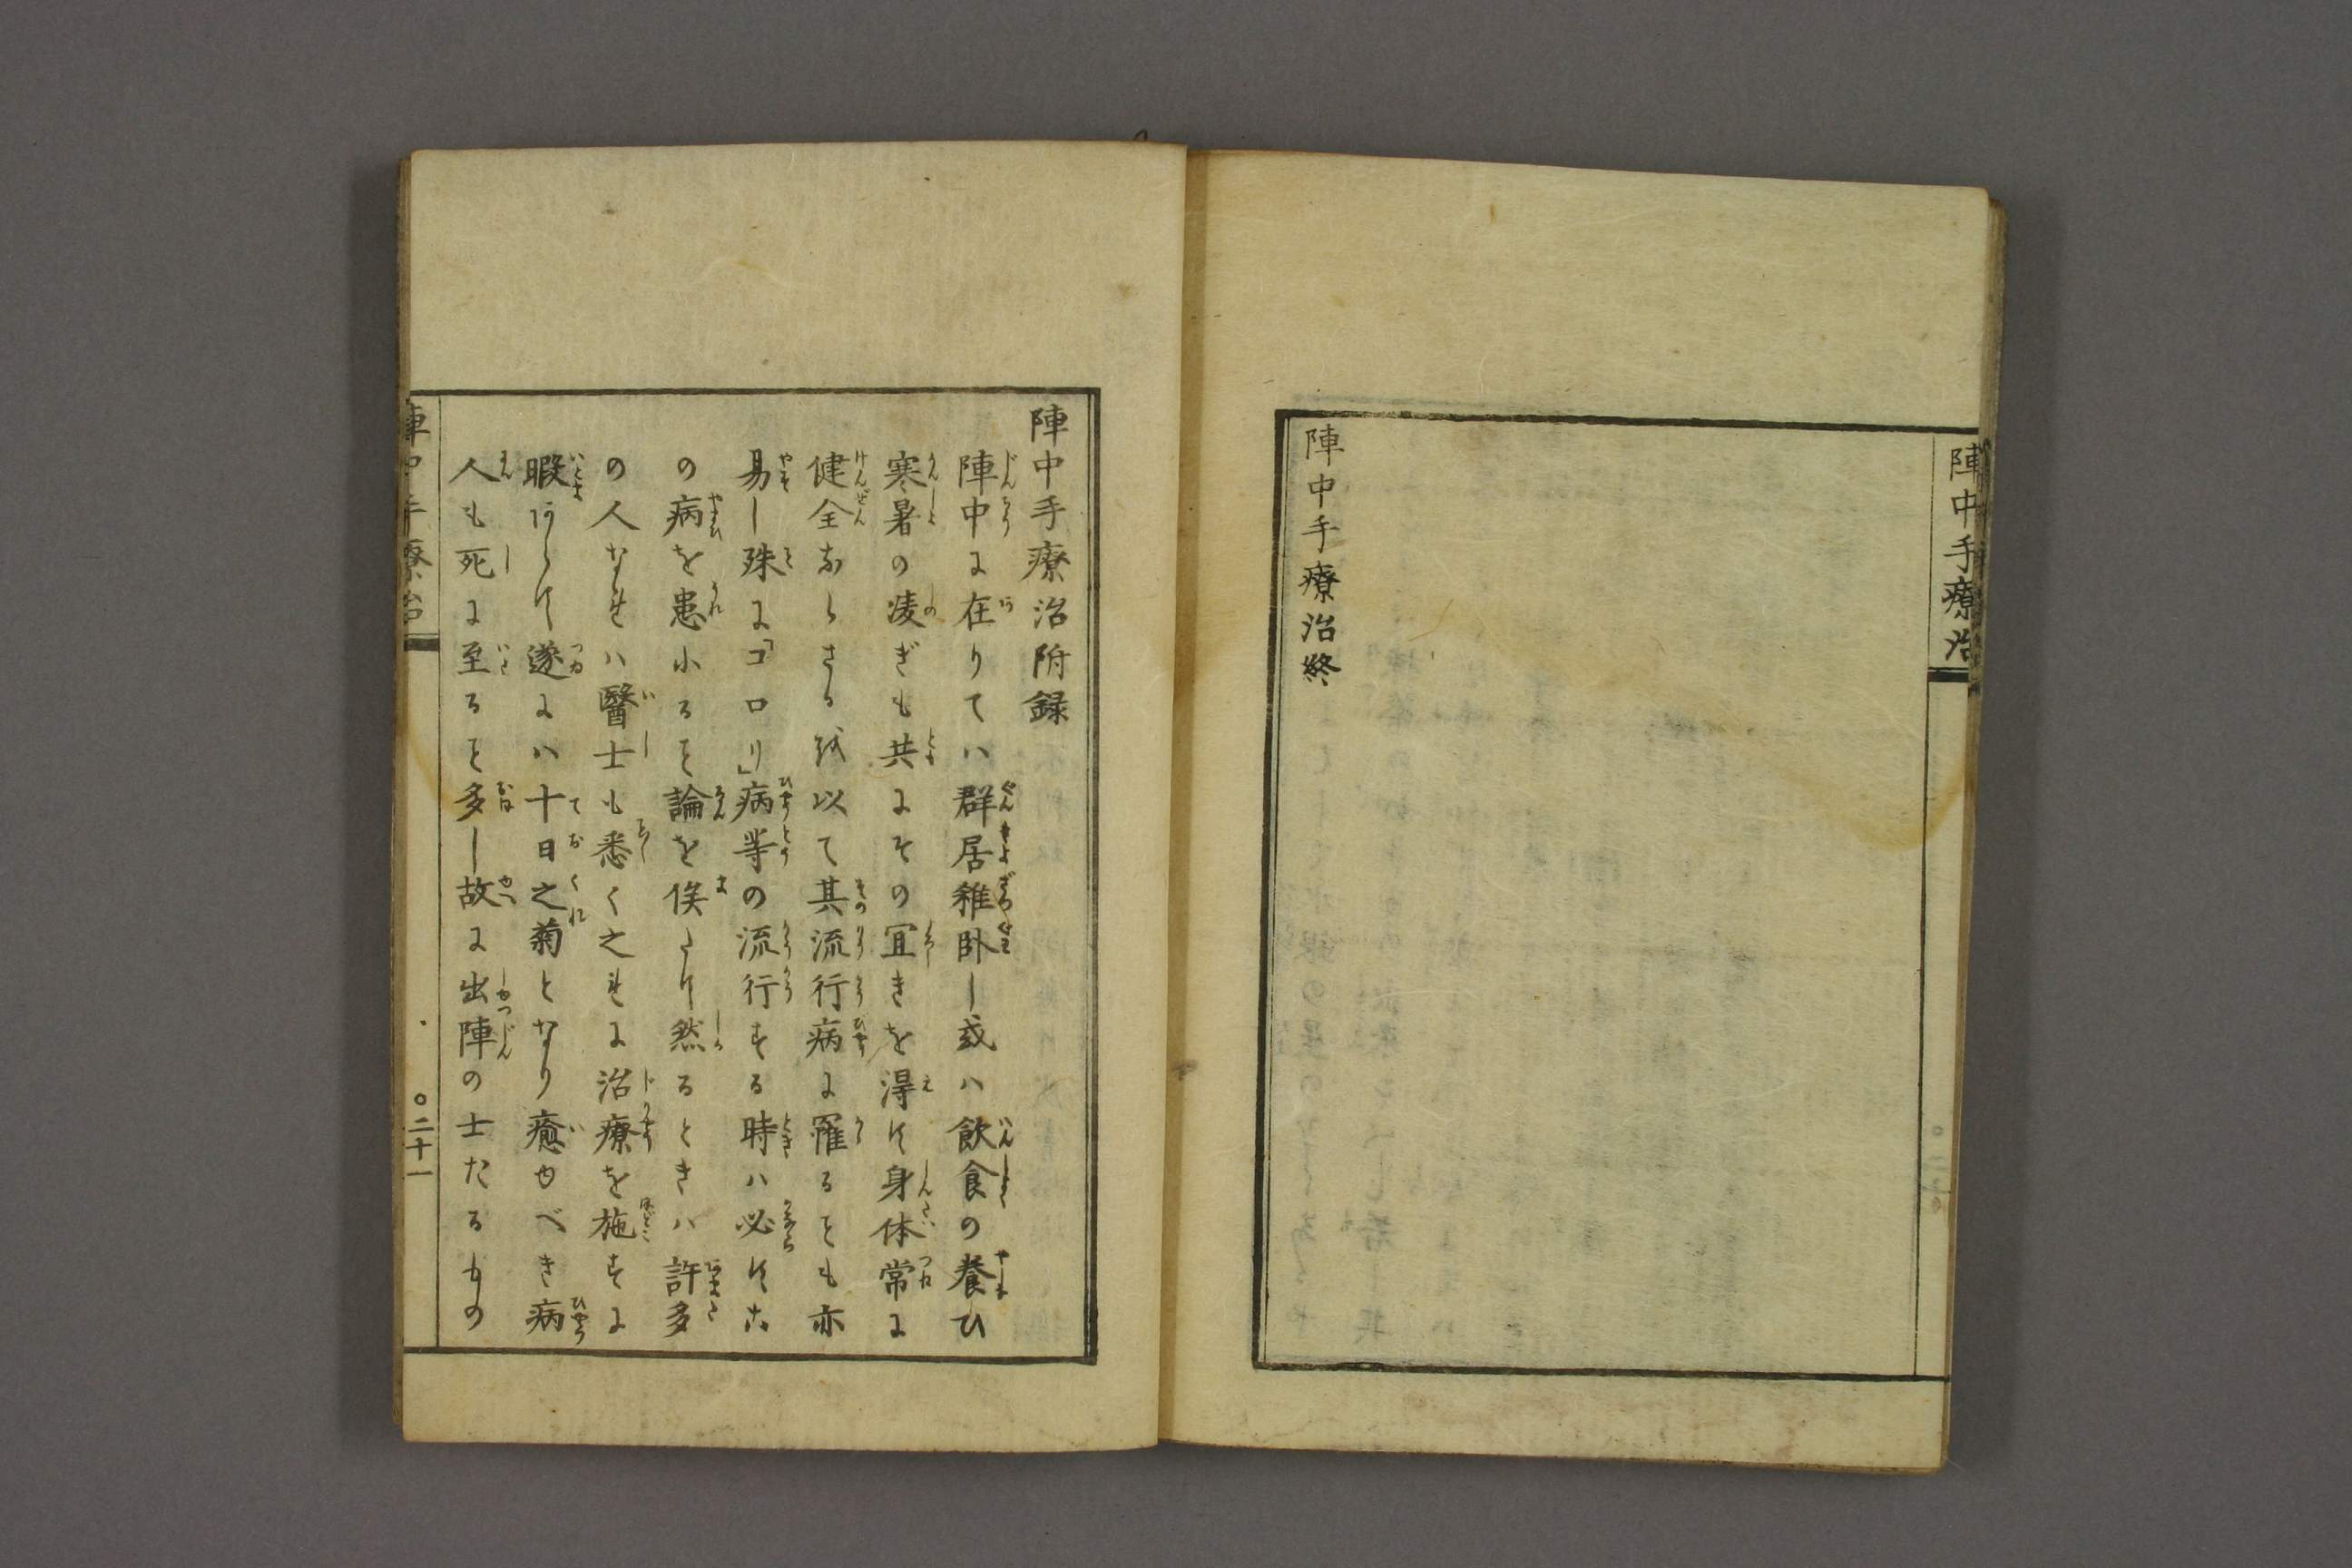 陣中手療治
陣中手療治終
陣中手療治附録
陣中に在りてハ群居雑卧し或ハ飲食の養ひ
寒暑の凌ぎも共にその冝きを得ず身体常に
健全ならざるを以て其流行病に罹ることも亦
易し殊に「コロリ」病等の流行する時ハ必ずこ
の病を患ふること論を俟たず然るときハ許多
の人なれハ醫士も悉く之れに治療を施すに
暇あらず遂にハ十日之菊となり癒ゆべき病
人も死に至ること多し故に出陣の士たるもの
陣中手療治
〇二十一